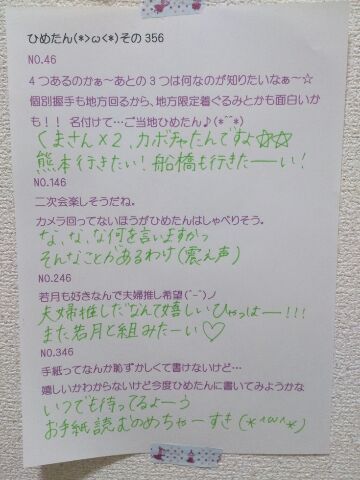 ひめたん(*>ω<*)その356
NO.46
4つあるのかぁ～あとの3つは何なのが知りたいなぁ～☆
個別握手も地方回るから、地方限定着ぐるみとかも面白いか
も！！ 名付けて…ご当地ひめたん♪(*^^*)
くまさん×2、カボチャたんですよ☆☆
熊本行きたい！船橋も行きたーーい！
NO.146
二次会楽しそうだね。
カメラ回ってないほうがひめたんはしゃべりそう。
な、な、な何を言いますかっ
そんなことがあるわけ(震え声)
NO.246
若月も好きなんで夫婦推し希望(^-^)ノ
夫婦推しだなんて嬉しいひゃっはー！！！
また若月と組みたーい♡
NO.346
手紙ってなんか恥ずかしくて書けないけど…
嬉しいかわからないけど今度ひめたんに書いてみようかな
いつでも待ってるよーう
お手紙読むのめちゃーすき(*^ω^*)